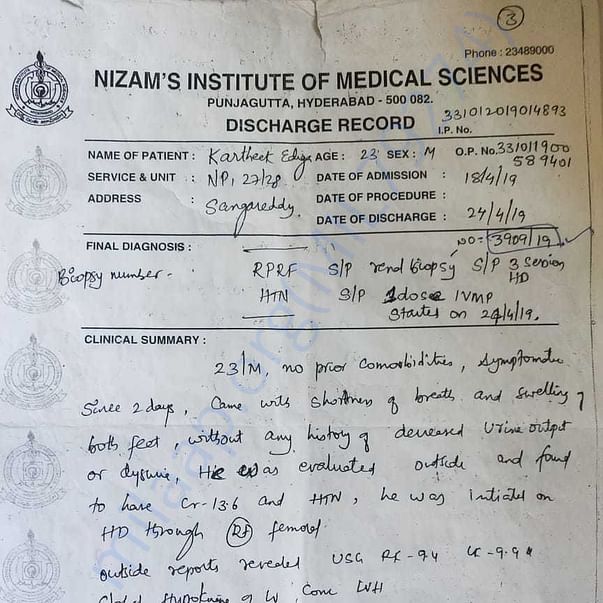 3
Phone : 23489000
NIZAM'S INSTITUTE OF MEDICAL SCIENCES
PUNJAGUTTA, HYDERABAD - 500 082.
DISCHARGE RECORD
I.P. No. 331012019014893
NAME OF PATIENT : Kartheek AGE : 23 SEX : M O.P. No. 331011900
589401
SERVICE & UNIT : NP1 27/28 DATE OF ADMISSION : 18/4/19
ADDRESS : Sangareddy. DATE OF PROCEDURE :
DATE OF DISCHARGE : 24/4/19
FINAL DIAGNOSIS : NO = 3909/19
Biopsy number - RPRF S/P renal Biopsy S/P 3 session HD
HTN S/P 1 dose IVMP
Started on 24/4/19.
CLINICAL SUMMARY :
23/M, no prior comorbidities, Symptomatic
Since 2 days, Came with shortness of breath and swelling of
both feet, without any history of decreased urine output
or dysuria, He was evaluated outside and found
to have Cr-13.6 and HTN, he was initiated on
HD through Rt femoral
outside reports revealed USG RK-9.4 LK-9.9
Global Hypokinesia of LV, Conc LVH
milaap.org